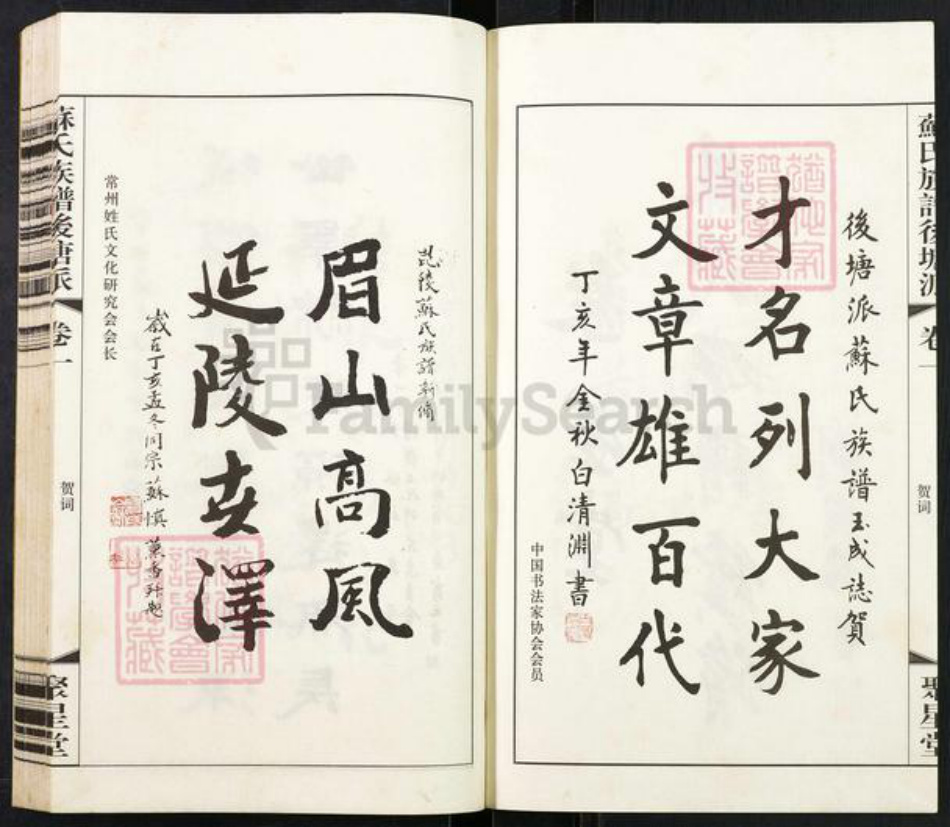 蘇氏族譜後塘派
卷一
贺词
聚星堂
後塘派蘇氏族譜玉成誌賀
才名列大家
文章雄百代
丁亥年金秋白清淵書
中国书法家协会会员
毘陵蘇氏族譜新脩
眉山高風
延陵世澤
歲在丁亥孟冬同宗蘇慎
常州姓氏文化研究会会长
蘇氏族譜後塘派
卷一
贺词
聚星堂
FamilySearch